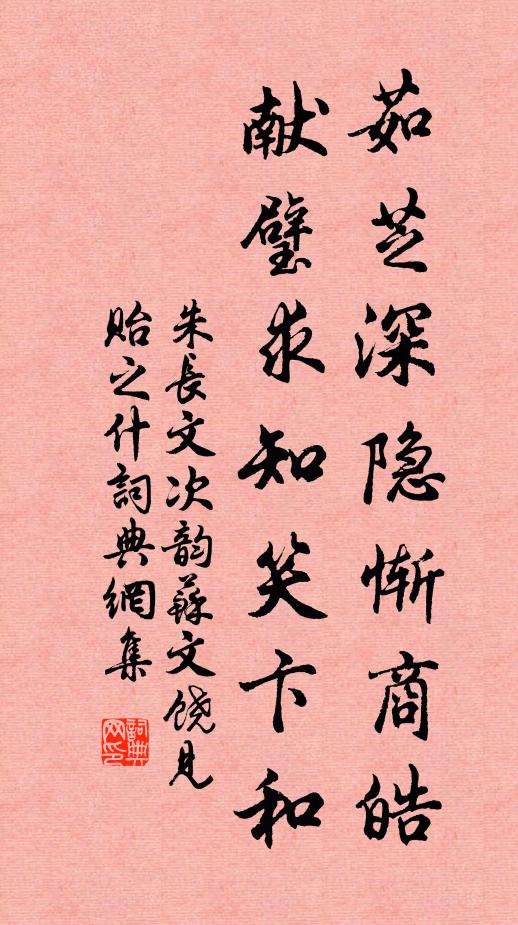 茹芝深隐惭商皓
献璧求知笑卞和
朱長文次韵蘇文饶見
貽之什詞典網集
詞典網印